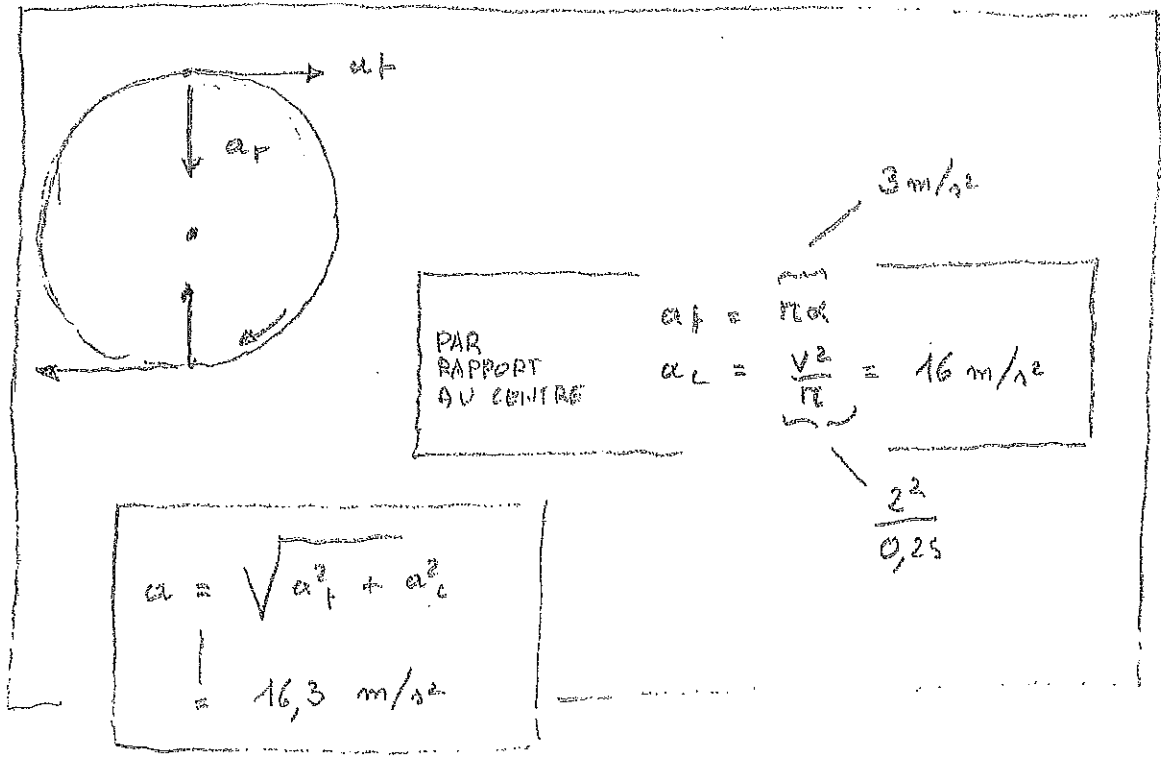 a_t
a_r
3 m/s²
PAR
RAPPORT
AU CENTRE
a_t = rα
a_c = v²/r = 16 m/s²
2²/0,25
a = √(a²_t + a²_c)
= 16,3 m/s²